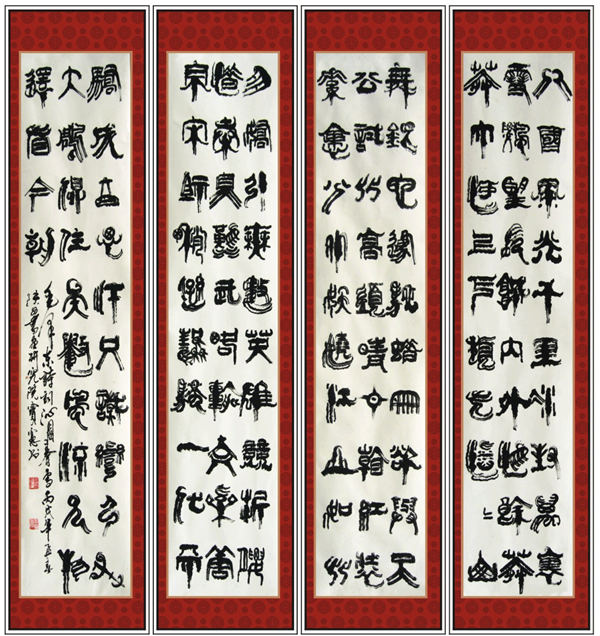 北國風光千里冰封萬里
雪飄望長城內外惟餘莽
莽大河上下頓失滔滔山
舞銀蛇原馳蠟象欲與天
公試比高須晴日看紅裝
素裹分外妖嬈江山如此
多嬌引無數英雄競折腰
惜秦皇漢武略輸文采唐
宗宋祖稍遜風騷一代天
驕成吉思汗只識彎弓射
大雕俱往矣數風流人物
還看今朝
毛澤東詩詞沁園春雪丙戌年
研究院